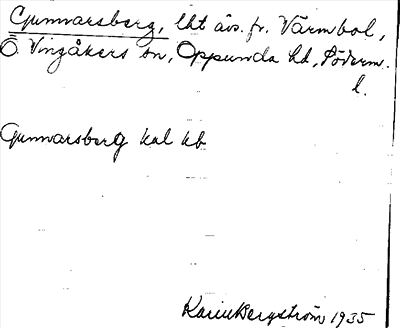 Gunnarsberg, lht avs. fr. Värmbol,
Ö. Vingåkers sn, Oppunda hd, Söderm.
l.
Gunnarsberg kal kb
Karin Bergström 1935